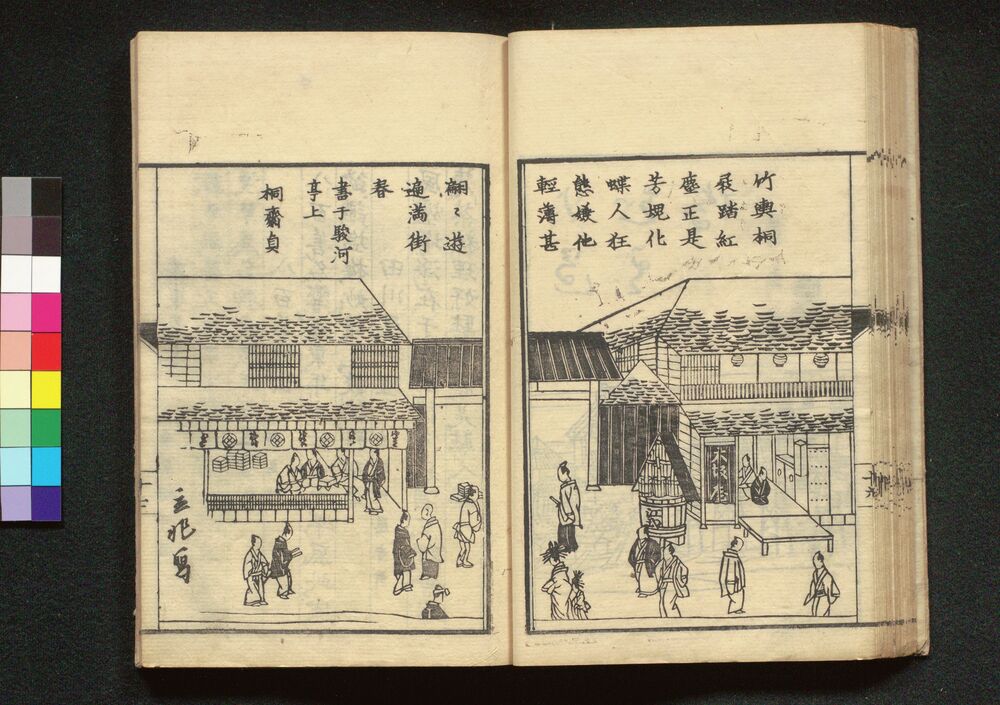 竹輿桐
屐踏紅
塵正是
芳槐化
蝶人狂
態嫌他
輕薄甚
翩〻遊
遍滿街
春
書于駿河
亭上
桐齋貞